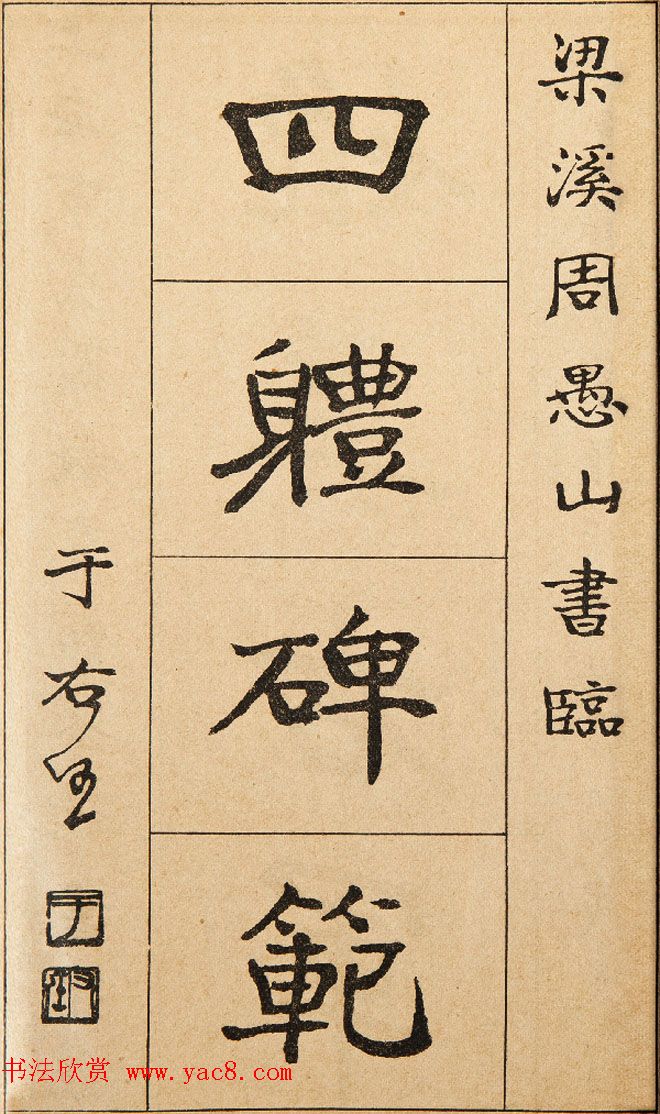 梁溪周愚山書臨
四軆碑範
于右任
于
书法欣赏 www.yac8.com